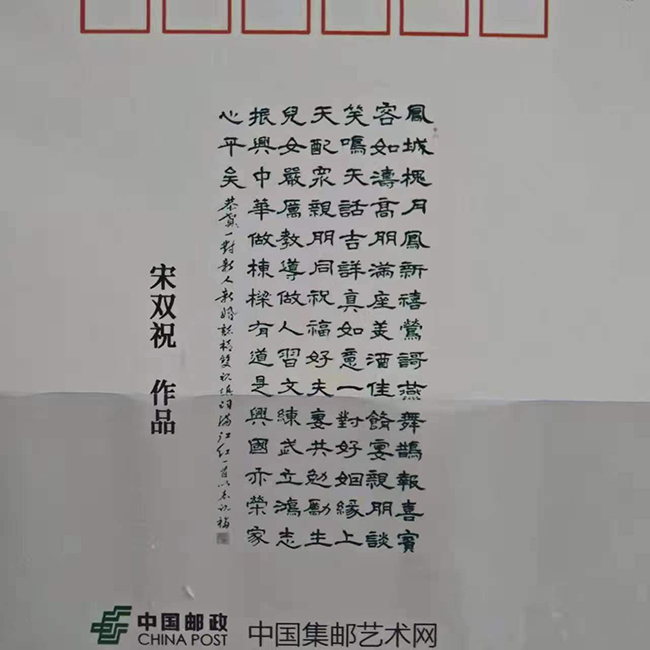 鳳城槐月鳳新禧鶯謌燕舞鵲報喜賓
容如濤高朋滿座美酒佳餚宴親朋談
笑鳴天話吉詳真如意一對好姻緣上
天配衆親朋同祝福好夫妻共勉勵生
兒女嚴厲教導做人習文練武立鴻志
振興中華做棟樑有道是興國亦榮家
心平矣 恭賀一對新人新婚雙祝填詞滿江紅一首以表祝福
宋双祝 作品
中国邮政
CHINA POST
中国集邮艺术网